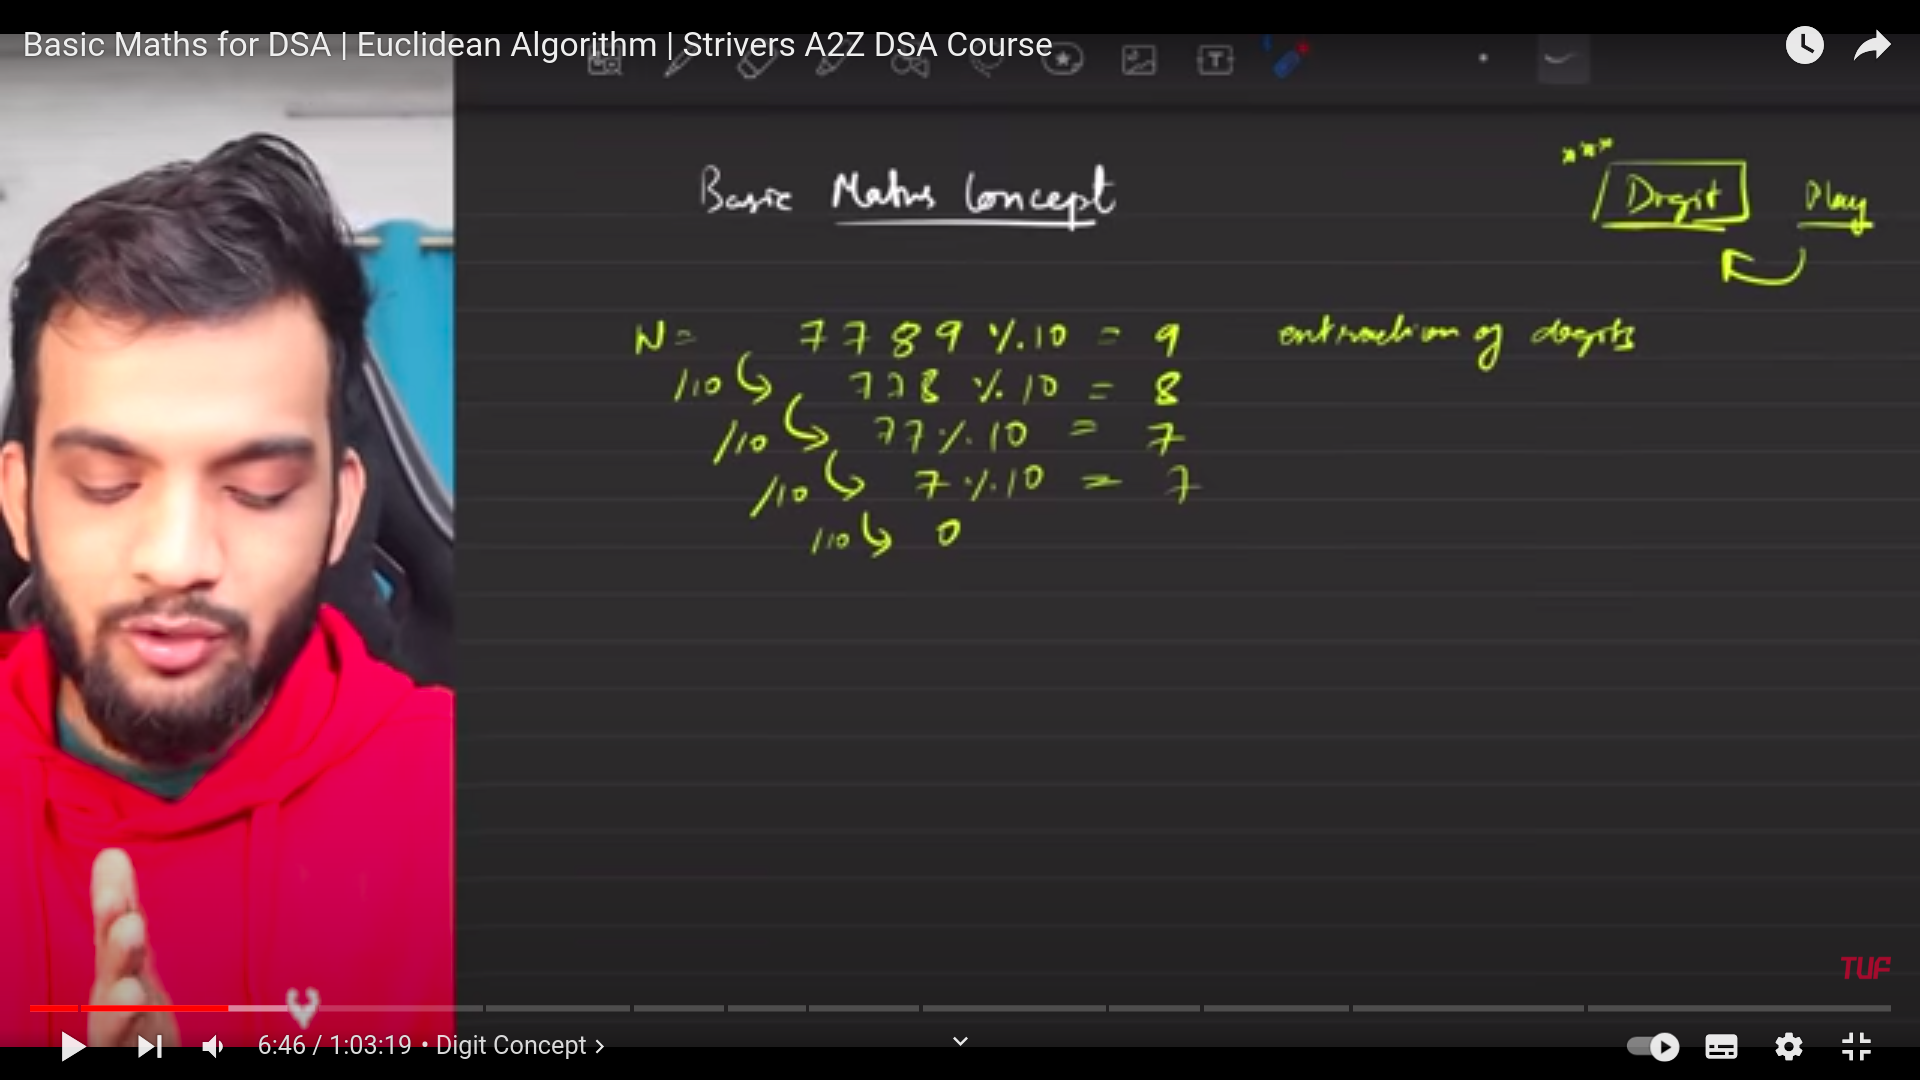 Basic Maths for DSA | Euclidean Algorithm | Strivers A2Z DSA Course
***
Digit Play
Basic Maths Concept
N = 7789 %10 = 9 extraction of digits
/10 778 %10 = 8
/10 77%10 = 7
/10 7%10 = 7
/10 0
TUF
6:46 / 1:03:19 • Digit Concept >